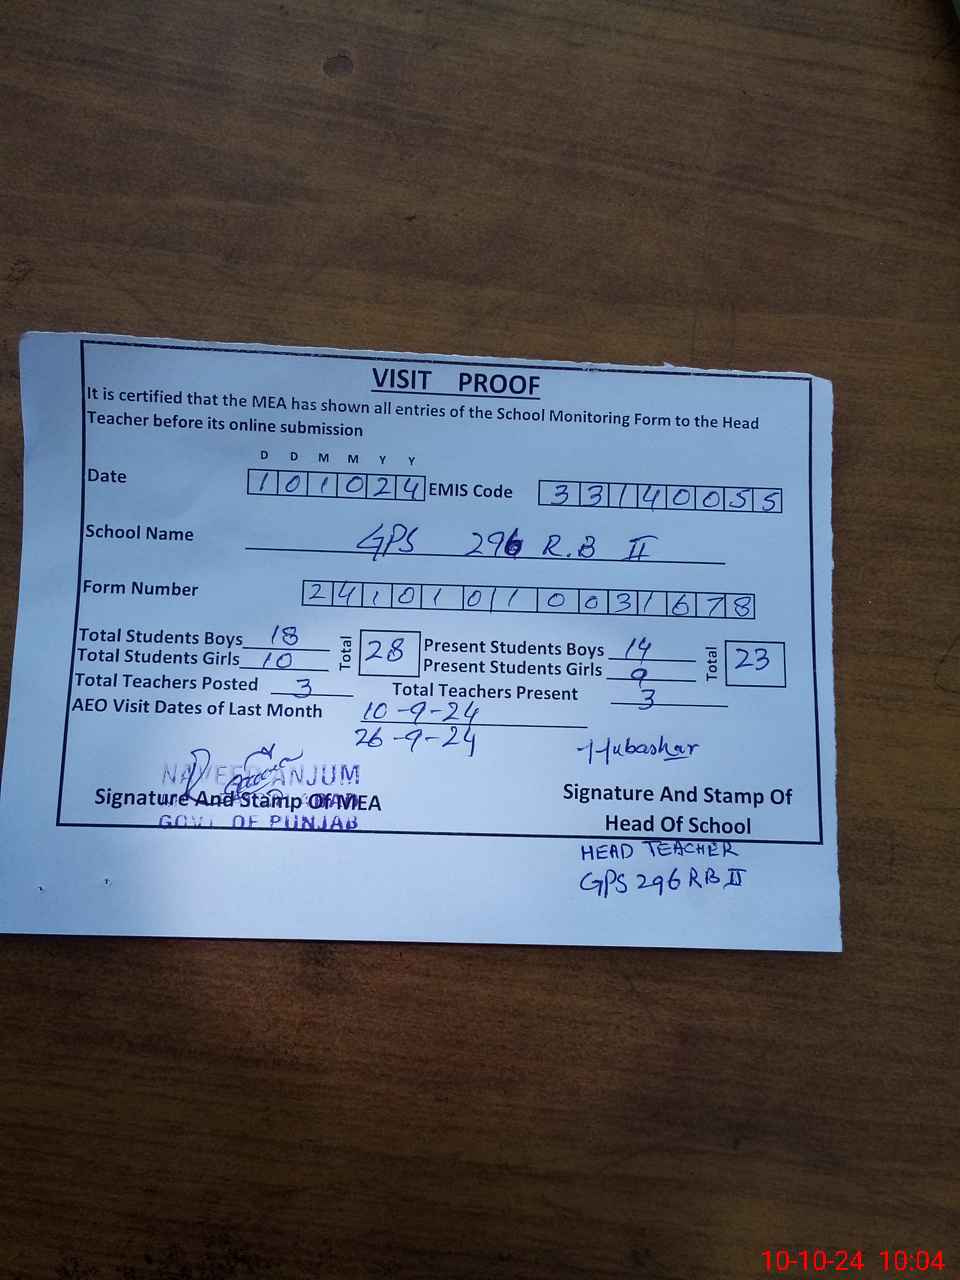 VISIT PROOF
It is certified that the MEA has shown all entries of the School Monitoring Form to the Head
Teacher before its online submission
D D M M Y Y
Date 101024 EMIS Code 33140055
School Name GPS 296 R.B II
Form Number 24101010031678
Total Students Boys 18 Total 28 Present Students Boys 14 Total 23
Total Students Girls 10 Present Students Girls 9
Total Teachers Posted 3 Total Teachers Present 3
AEO Visit Dates of Last Month 10-9-24
26-9-24
Mubashar
NAVEED ANJUM
Signature And Stamp Of MEA
GOVT OF PUNJAB
Signature And Stamp Of
Head Of School
HEAD TEACHER
GPS 296 RB II
10-10-24 10:04